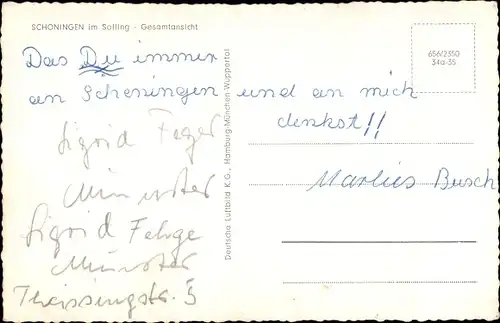 SCHONINGEN im Solling - Gesamtansicht
656/2350
34a-35
Das Du immer
an Schoningen und an mich
denkst!!
Marlies Busch
Sigrid Feger
Münster
Sigrid Fehge
Münster
Theissingstr. 5
Deutsche Luftbild K.G., Hamburg-München-Wuppertal